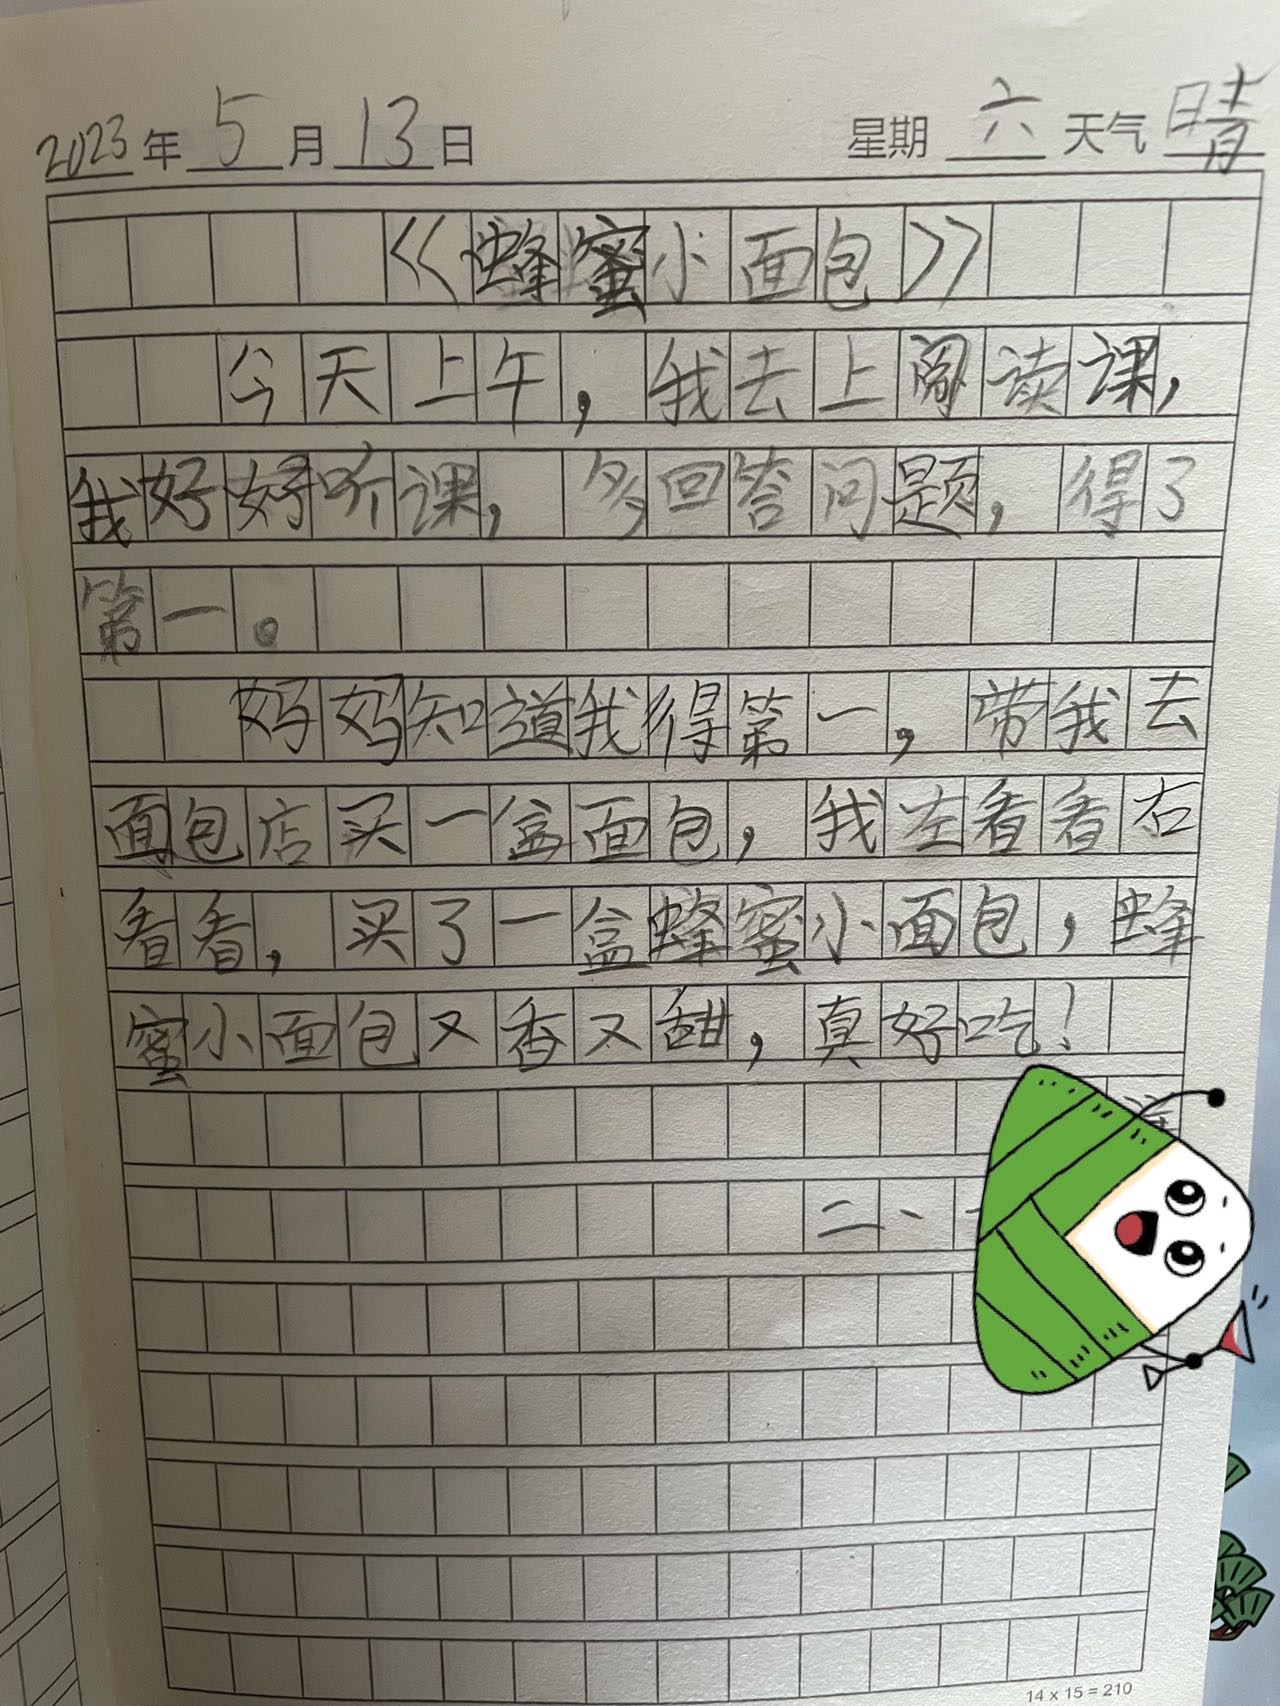 2023年5月13日 星期六 天气晴
《蜂蜜小面包》
今天上午，我去上阅读课，
我好好听课，多回答问题，得了
第一。
妈妈知道我得第一，带我去
面包店买一盒面包，我左看看右
看看，买了一盒蜂蜜小面包，蜂
蜜小面包又香又甜，真好吃！
二、
14 x 15 = 210